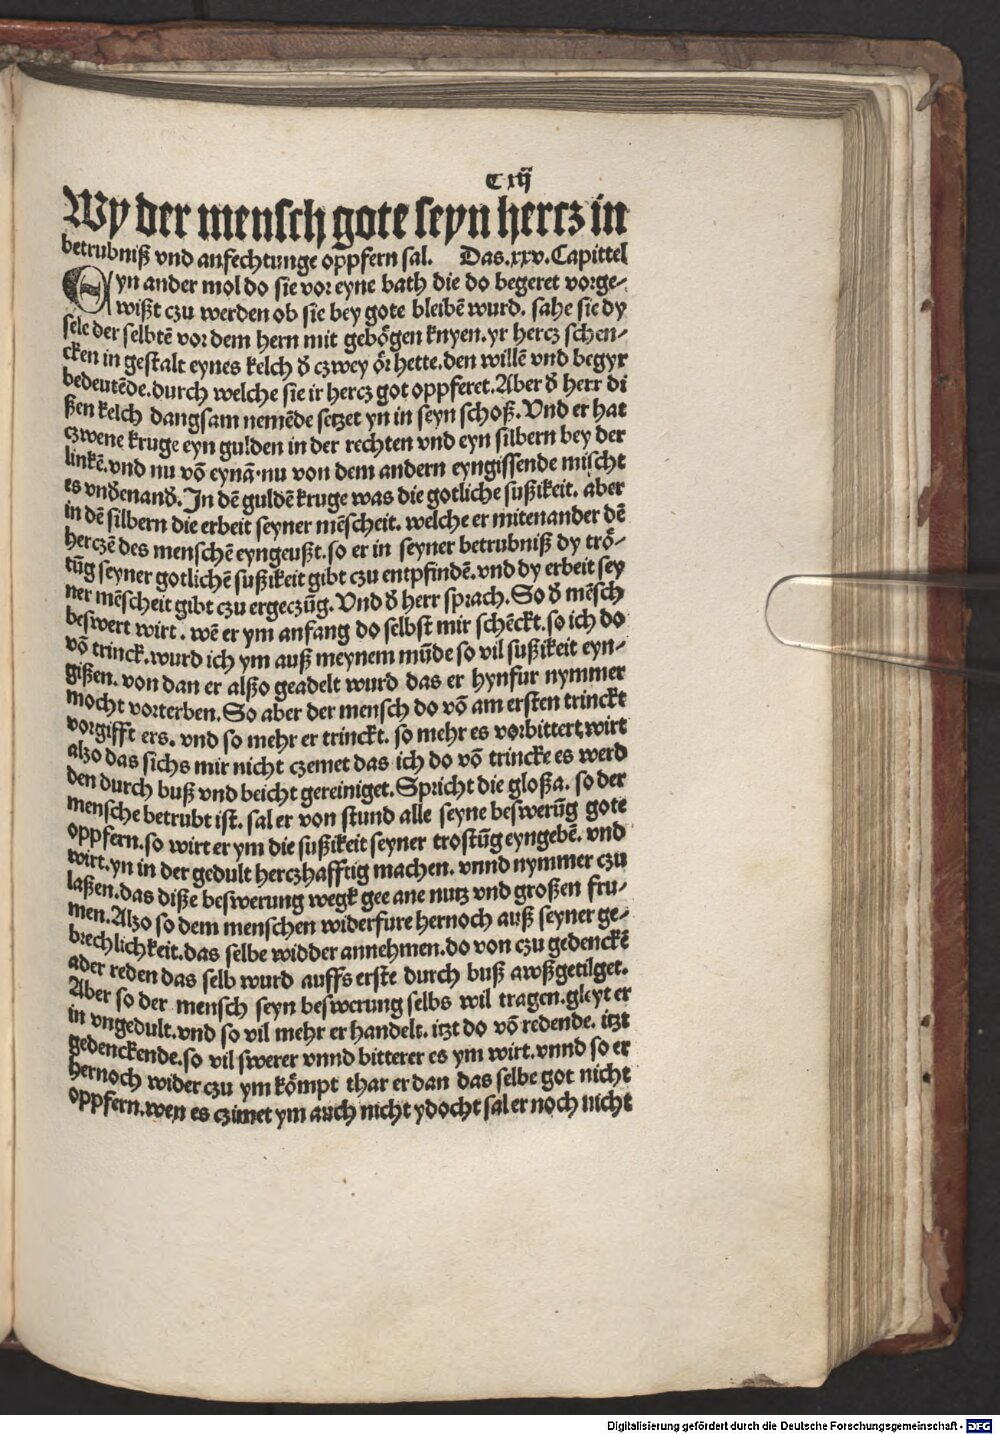 C xij
Wy der mensch gote seyn hercz in
betrubniß vnd anfechtunge oppfern sal. Das.xxv.Capittel
Eyn ander mol do sie vor eyne bath die do begeret vorge-
wißt czu werden ob sie bey gote bleibē wurd. sahe sie dy
sele der selbtē vor dem hern mit gebögen knyen.yr hercz schen-
cken in gestalt eynes kelch đ czwey ör hette.den willē vnd begyr
bedeutēde.durch welche sie ir hercz got oppferet.Aber đ herr di
ßen kelch dangsam nemēde setzet yn in seyn schoß.Vnd er hat
czwene kruge eyn gulden in der rechten vnd eyn silbern bey der
linkē.vnd nu vō eynā.nu von dem andern eyngissende mischt
es vnđenanđ.In dē guldē kruge was die gotliche sußikeit. aber
in dē silbern die erbeit seyner mēscheit. welche er mitenander dē
herczē des menschē eyngeußt.so er in seyner betrubniß dy trö-
tūg seyner gotlichē sußikeit gibt czu entpfindē.vnd dy erbeit sey
ner mēscheit gibt czu ergeczūg.Vnd đ herr sprach.So đ mēsch
beswert wirt. wē er ym anfang do selbst mir schēckt.so ich do
vō trinck.wurd ich ym auß meynem mūde so vil sußikeit eyn-
gißen.von dan er alßo geadelt wurd das er hynfur nymmer
mocht vorterben.So aber der mensch do vō am ersten trinckt
vorgifft ers. vnd so mehr er trinckt. so mehr es vorbittert wirt
alzo das sichs mir nicht czemet das ich do vō trincke es werd
den durch buß vnd beicht gereiniget.Spricht die gloßa. so der
mensche betrubt ist. sal er von stund alle seyne beswerūg gote
oppfern.so wirt er ym die sußikeit seyner trostūg eyngebē. vnd
wirt.yn in der gedult herczhafftig machen. vnnd nymmer czu
laßen.das diße beswerung wegk gee ane nutz vnd großen fru-
men.Alzo so dem menschen widerfure hernoch auß seyner ge-
brechlichkeit.das selbe widder annehmen.do von czu gedenckē
ader reden das selb wurd auffs erste durch buß awßgetilget.
Aber so der mensch seyn beswerung selbs wil tragen.gleyt er
in vngedult.vnd so vil mehr er handelt. itzt do vō redende. itzt
gedenckende.so vil swerer vnnd bitterer es ym wirt.vnnd so er
hernoch wider czu ym kömpt thar er dan das selbe got nicht
oppfern.wen es czimet ym auch nicht ydocht sal er noch nicht
Digitalisierung gefördert durch die Deutsche Forschungsgemeinschaft - DFG